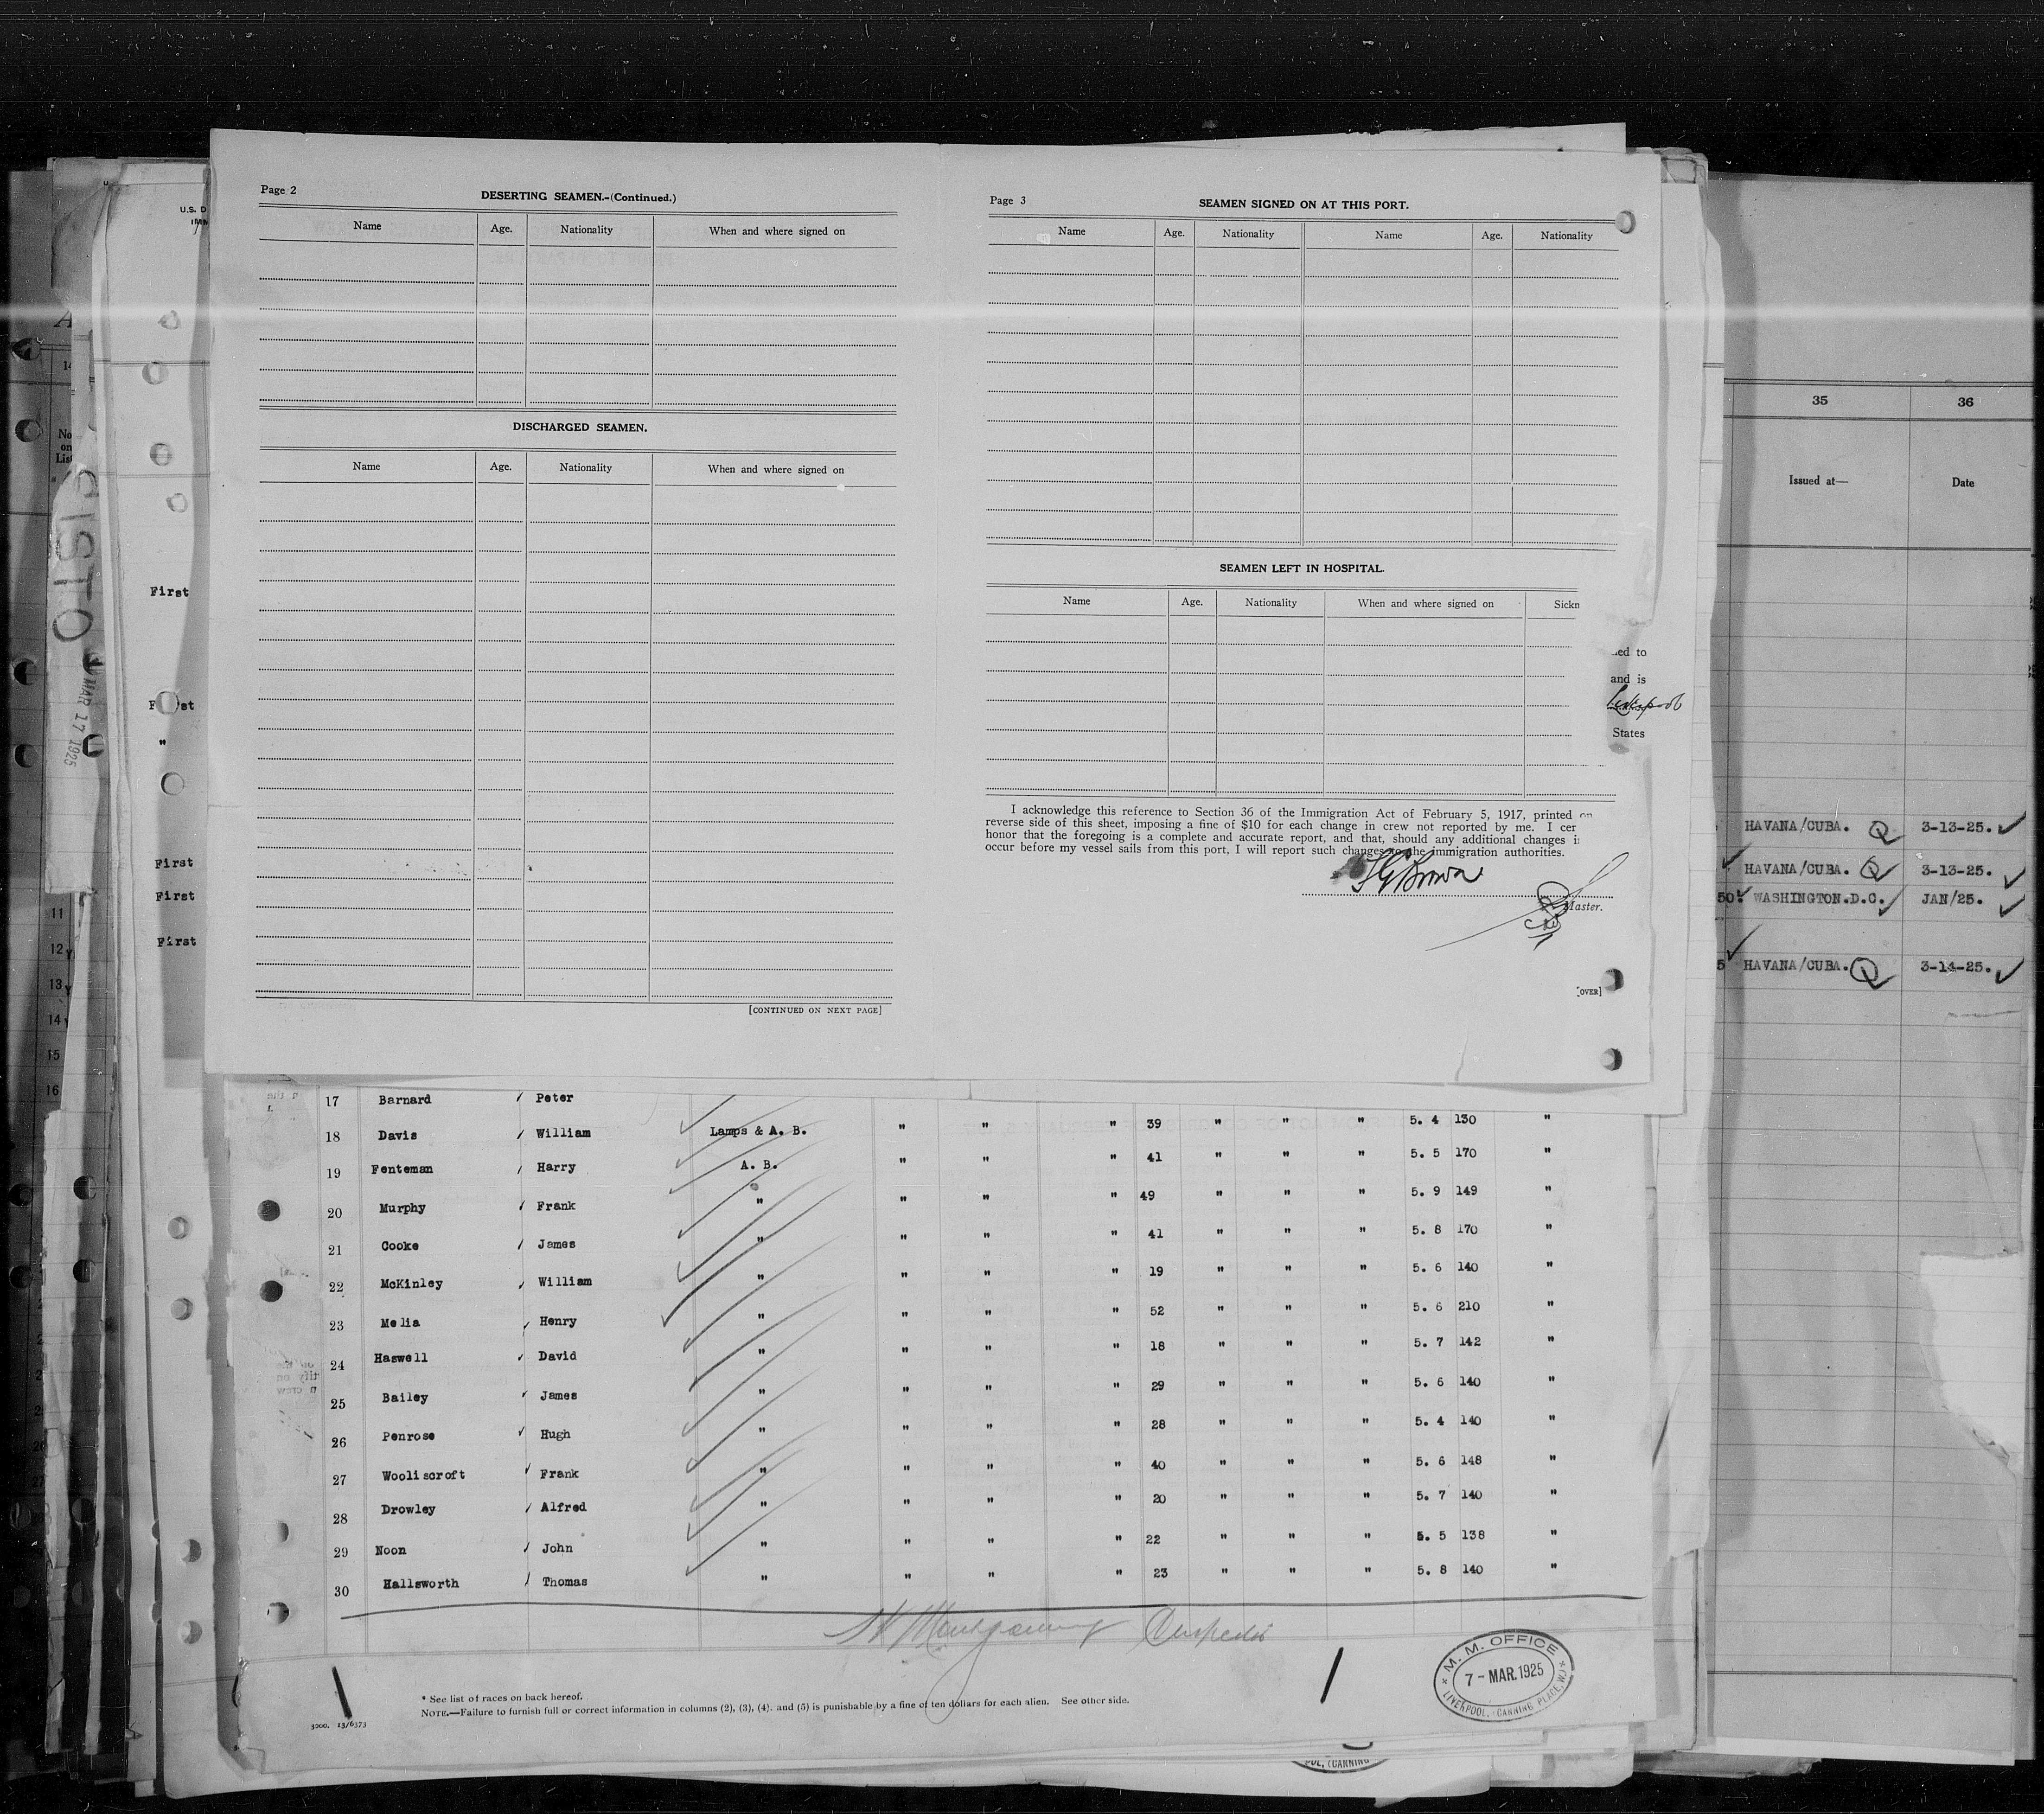 Page 2
DESERTING SEAMEN.-(Continued.)
Name Age. Nationality When and where signed on
DISCHARGED SEAMEN.
Name Age. Nationality When and where signed on
[CONTINUED ON NEXT PAGE]
Page 3
SEAMEN SIGNED ON AT THIS PORT.
Name Age. Nationality Name Age. Nationality
SEAMEN LEFT IN HOSPITAL.
Name Age. Nationality When and where signed on Sickn
I acknowledge this reference to Section 36 of the Immigration Act of February 5, 1917, printed on
reverse side of this sheet, imposing a fine of $10 for each change in crew not reported by me. I cer
honor that the foregoing is a complete and accurate report, and that, should any additional changes i
occur before my vessel sails from this port, I will report such changes to the immigration authorities.
Brown
Master.
[OVER]
ed to
and is
Liverpool
States
U.S. D
First
First
"
First
First
First
No
on
List
MAR 17 1925
11
12
13
14
15
16
35 36
Issued at— Date
HAVANA/CUBA. 3-13-25.
HAVANA/CUBA. 3-13-25.
50. WASHINGTON.D.C. JAN/25.
5 HAVANA/CUBA. 3-14-25.
17 Barnard Peter
18 Davis William Lamps & A. B. " " " 39 " " " 5. 4 130 "
19 Fenteman Harry A. B. " " " 41 " " " 5. 5 170 "
20 Murphy Frank " " " " 49 " " " 5. 9 149 "
21 Cooke James " " " " 41 " " " 5. 8 170 "
22 McKinley William " " " " 19 " " " 5. 6 140 "
23 Melia Henry " " " " 52 " " " 5. 6 210 "
24 Haswell David " " " " 18 " " " 5. 7 142 "
25 Bailey James " " " " 29 " " " 5. 6 140 "
26 Penrose Hugh " " " " 28 " " " 5. 4 140 "
27 Wooliscroft Frank " " " " 40 " " " 5. 6 148 "
28 Drowley Alfred " " " " 20 " " " 5. 7 140 "
29 Noon John " " " " 22 " " " 5. 5 138 "
30 Hallsworth Thomas " " " " 23 " " " 5. 8 140 "
Montgomery Inspector
* See list of races on back hereof.
NOTE.—Failure to furnish full or correct information in columns (2), (3), (4). and (5) is punishable by a fine of ten dollars for each alien. See other side.
3000. 13/6373
M. M. OFFICE
7 - MAR. 1925
LIVERPOOL, (CANNING PLACE, W.)
POL, (CANNING